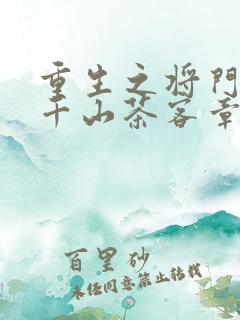 重生之将門
千山茶客章
百里砂
未经同意禁止转载